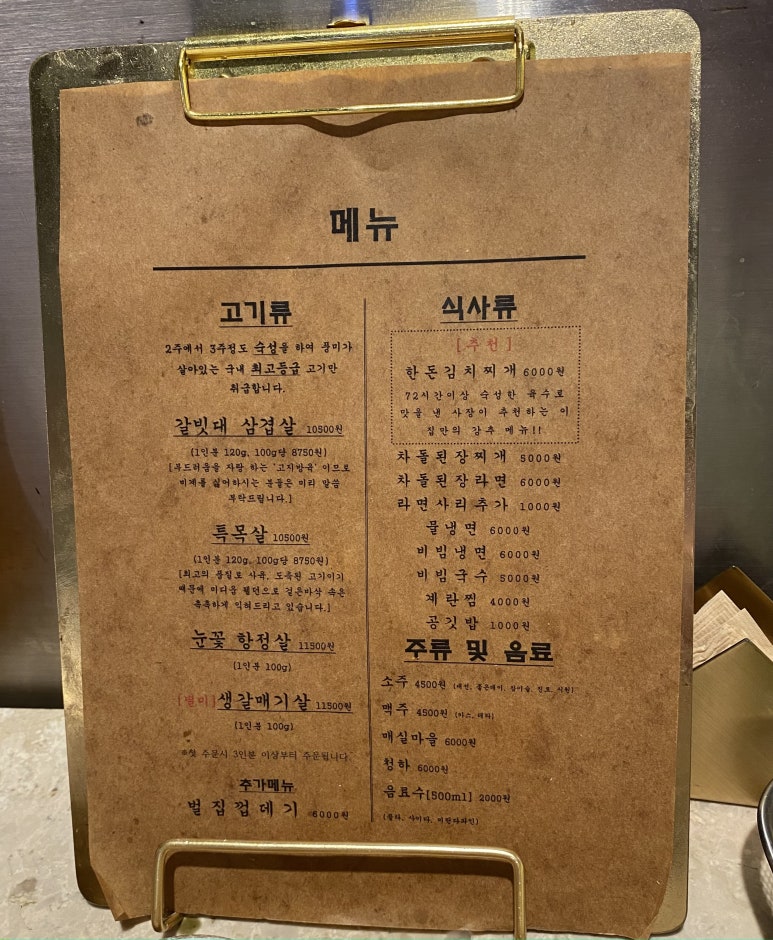 메뉴
고기류
2주에서 3주정도 숙성을 하여 풍미가
살아있는 국내 최고등급 고기만
취급합니다.
갈빗대 삼겹살 10500원
(1인분 120g, 100g당 8750원)
[부드러움을 자랑 하는 '고지방육' 이므로
비계를 싫어하시는 분들은 미리 말씀
부탁드립니다.]
특목살 10500원
(1인분 120g, 100g당 8750원)
[최고의 품질로 사육, 도축된 고기이기
때문에 미디움 웰던으로 겉은바삭 속은
촉촉하게 익혀드리고 있습니다.]
눈꽃 항정살 11500원
(1인분 100g)
[별미]생갈매기살 11500원
(1인분 100g)
※첫 주문시 3인분 이상부터 주문됩니다.
추가메뉴
벌집껍데기 6000원
식사류
[추천]
한돈김치찌개 6000원
72시간이상 숙성한 육수로
맛을 낸 사장이 추천하는 이
집만의 강추 메뉴!!
차돌된장찌개 5000원
차돌된장라면 6000원
라면사리추가 1000원
물냉면 6000원
비빔냉면 6000원
비빔국수 5000원
계란찜 4000원
공깃밥 1000원
주류 및 음료
소주 4500원 (대선, 좋은데이, 참이슬, 진로, 시원)
맥주 4500원 (카스, 테라)
매실마을 6000원
청하 6000원
음료수[500ml] 2000원
(콜라, 사이다, 미란다파인)